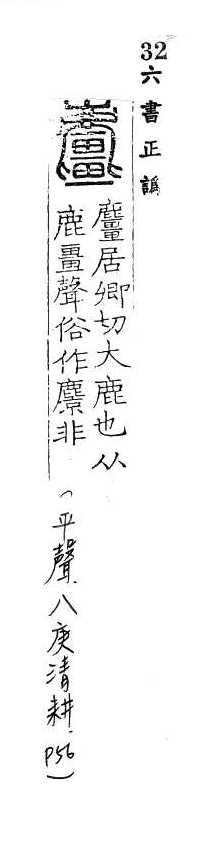 32六書正譌
麠居卿切大鹿也从
鹿畺聲俗作麖非
(平聲.八庚清耕.P56)